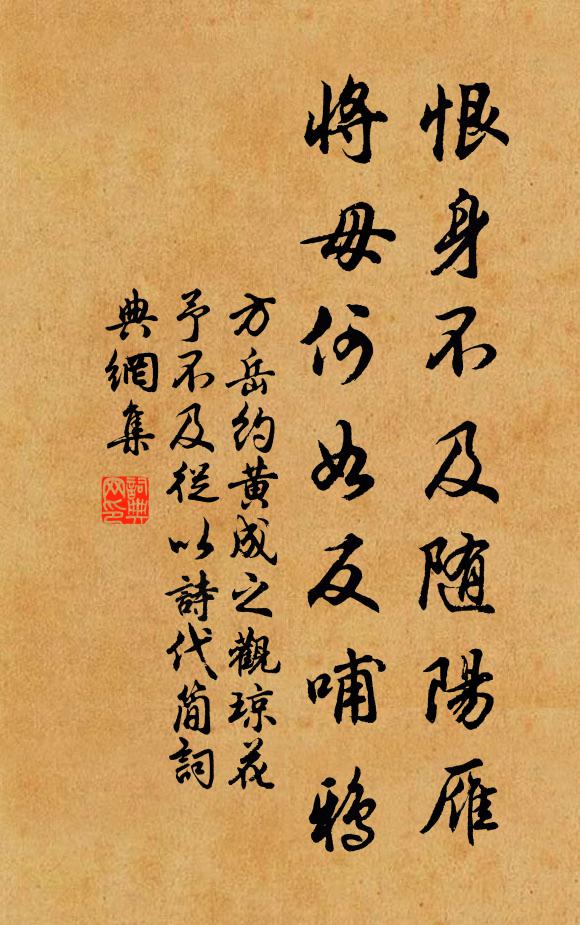 恨身不及随陽雁
將毋何如反哺鴉
方岳約黄成之觀琼花
予不及從以詩代简詞
典網集
詞典
网印